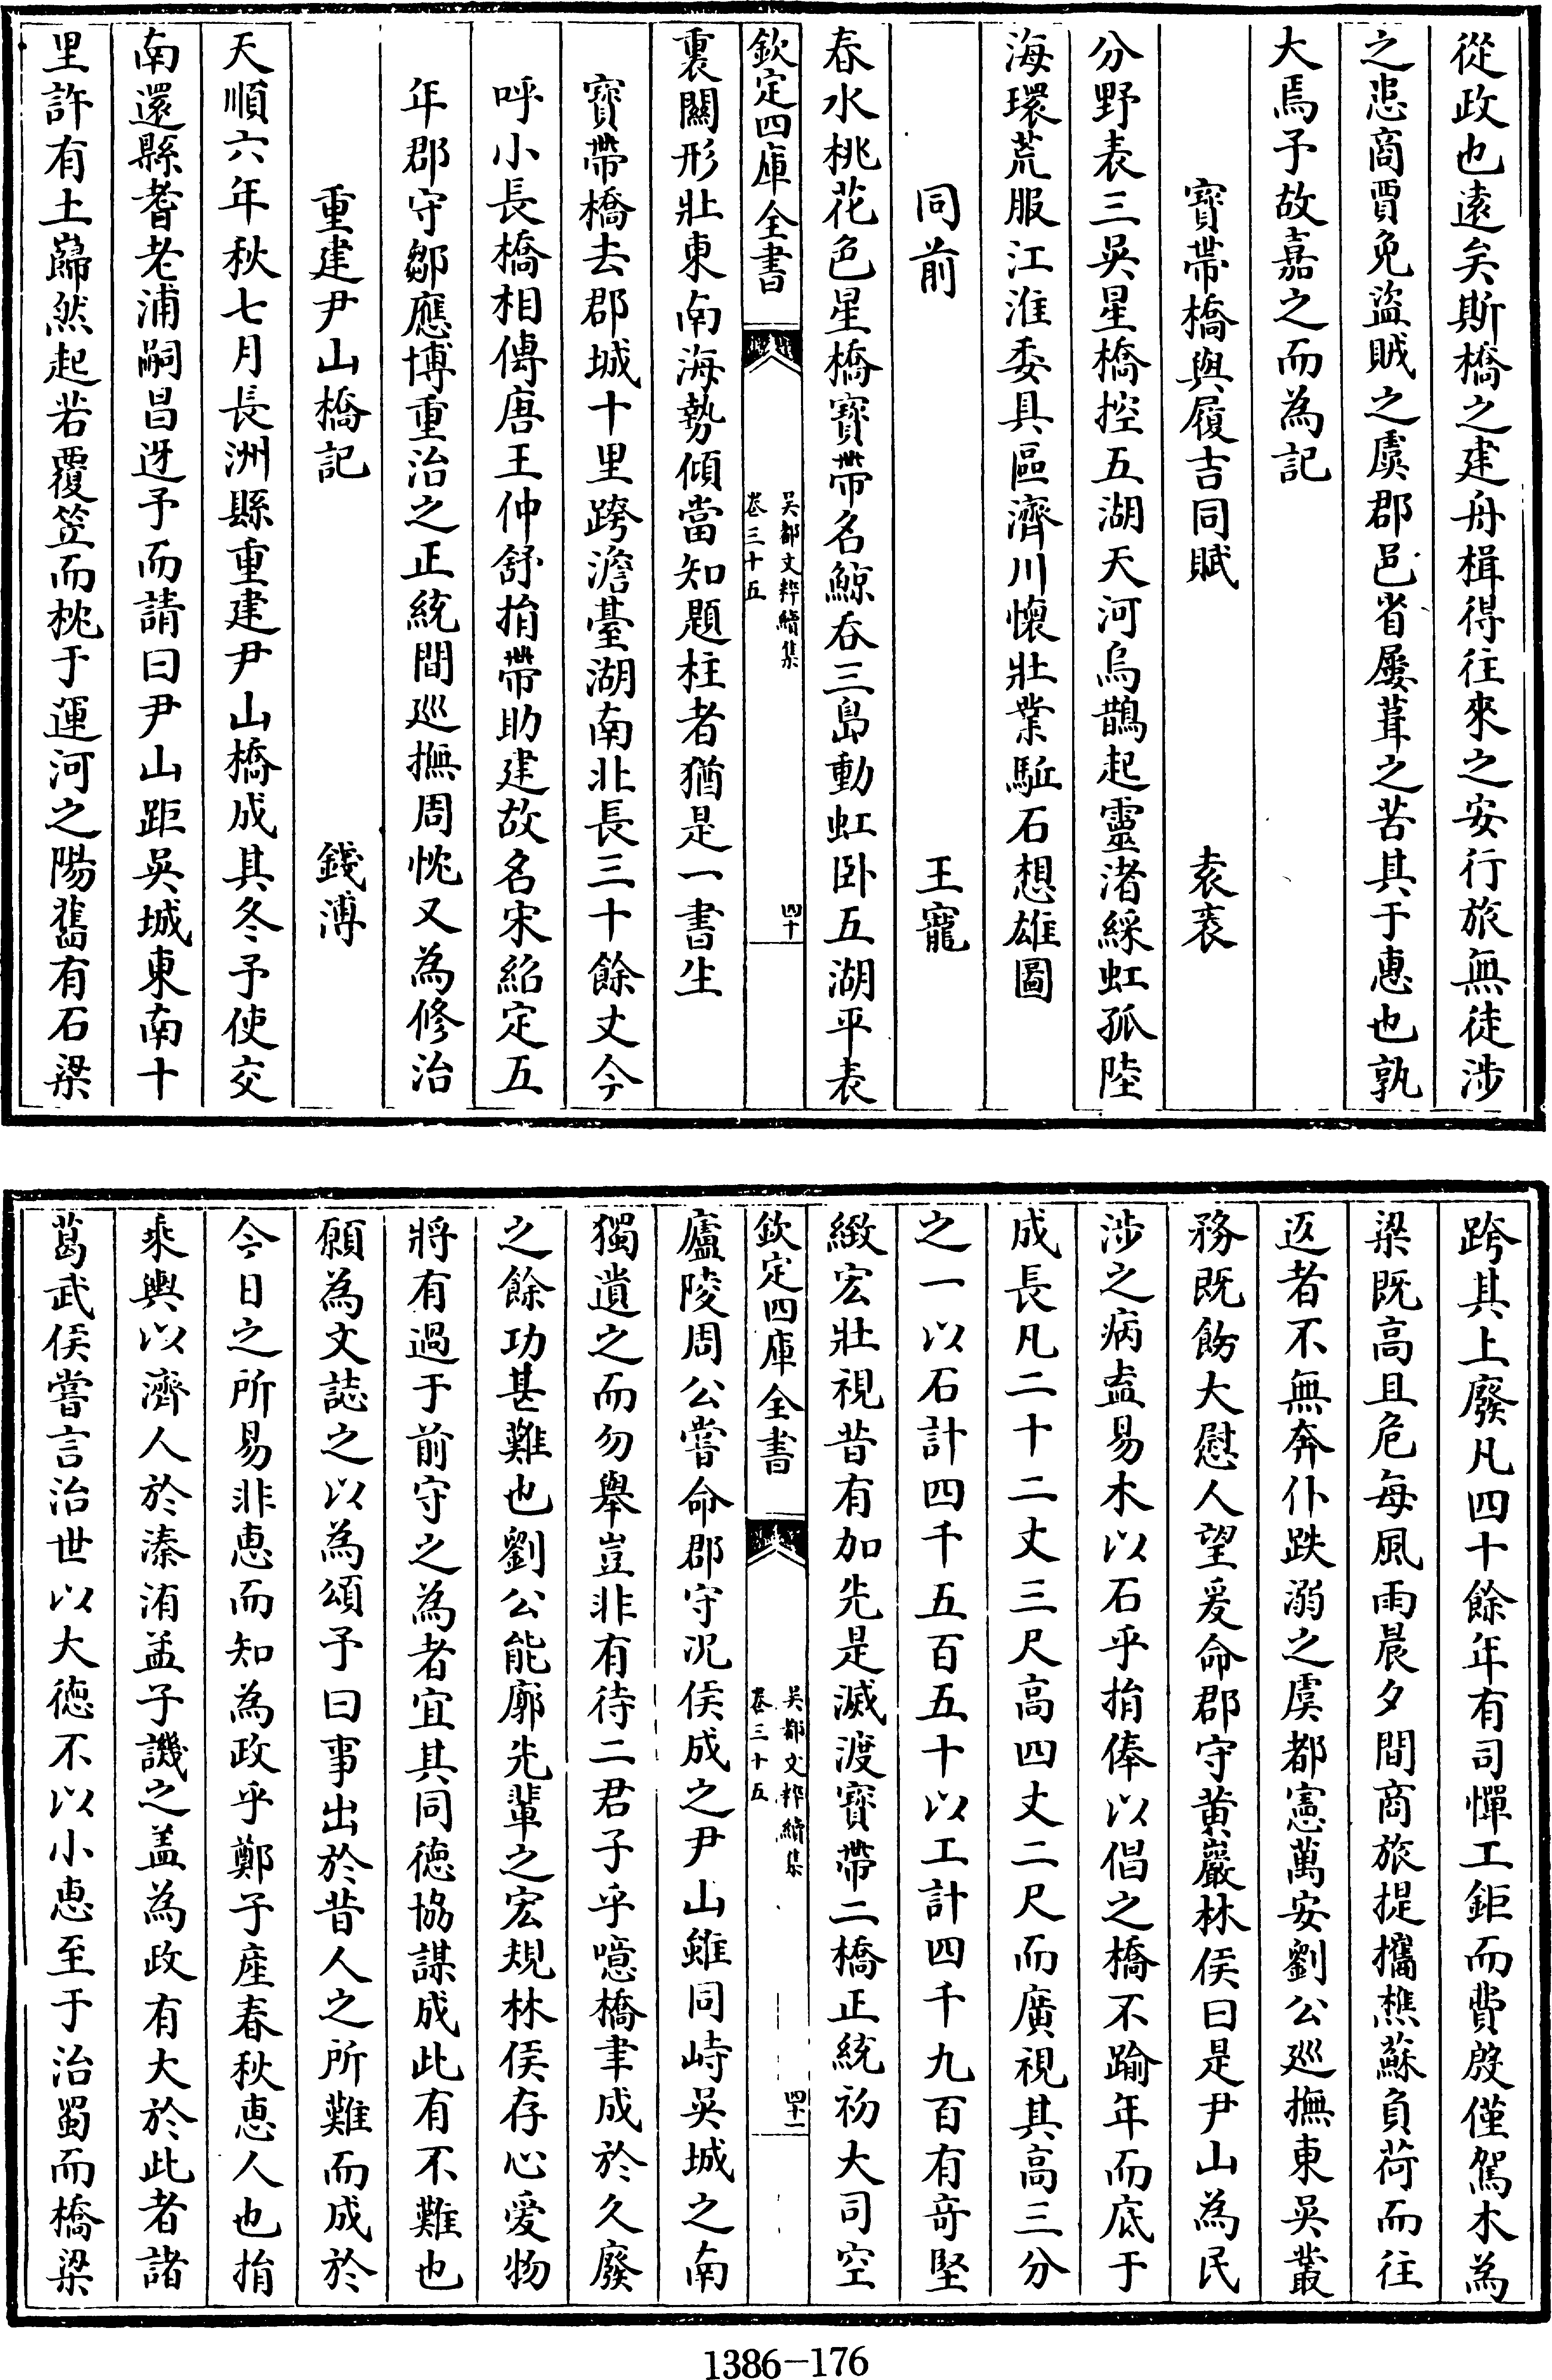 從政也逺矣斯橋之建舟楫得往來之安行旅無徒渉
之恐商賈免盜賊之虞郡邑省屢葺之苦其于惠也孰
大焉予故嘉之而為記
寳帶橋與履吉同賦　袁袠
分野表三吳星橋控五湖天河烏鵲起靈渚綵虹孤陸
海環荒服江淮委具區濟川懷壯業駈石想雄圖
同前　王寵
春水桃花色星橋寳帶名鯨吞三島動虹卧五湖平表
欽定四庫全書　吳都文粹續集　卷三十五　四十
裏闗形壯東南海勢傾當知題柱者猶是一書生
寳帶橋去郡城十里跨澹臺湖南北長三十餘丈今
呼小長橋相傳唐王仲舒捐帶助建故名宋紹定五
年郡守鄒應博重治之正統間廵撫周忱又為修治
重建尹山橋記　錢溥
天順六年秋七月長洲縣重建尹山橋成其冬予使交
南還縣耆老浦嗣昌迓予而請曰尹山距吳城東南十
里許有土巋然起若覆笠而枕于運河之陽舊有石梁
跨其上廢凡四十餘年有司憚工鉅而費殷僅駕木為
梁既高且危每風雨晨夕間商旅提攜樵蘇負荷而往
返者不無奔仆跌溺之虞都憲萬安劉公廵撫東吳叢
務既飭大慰人望爰命郡守黄巖林侯曰是尹山為民
渉之病盍易木以石乎捐俸以倡之橋不踰年而底于
成長凡二十二丈三尺高四丈二尺而廣視其高三分
之一以石計四千五百五十以工計四千九百有竒堅
緻宏壯視昔有加先是滅渡寳帶二橋正統初大司空
欽定四庫全書　吳都文粹續集　卷三十五　四十一
廬陵周公嘗命郡守況侯成之尹山雖同峙吳城之南
獨遺之而勿舉豈非有待二君子乎噫橋聿成於久廢
之餘功甚難也劉公能廓先輩之宏規林侯存心愛物
將有過于前守之為者宜其同徳協謀成此有不難也
願為文誌之以為頌予曰事出於昔人之所難而成於
今日之所易非恵而知為政乎鄭子產春秋恵人也捐
乘輿以濟人於溱洧孟子譏之盖為政有大於此者諸
葛武侯嘗言治世以大徳不以小恵至于治蜀而橋梁
1386-176